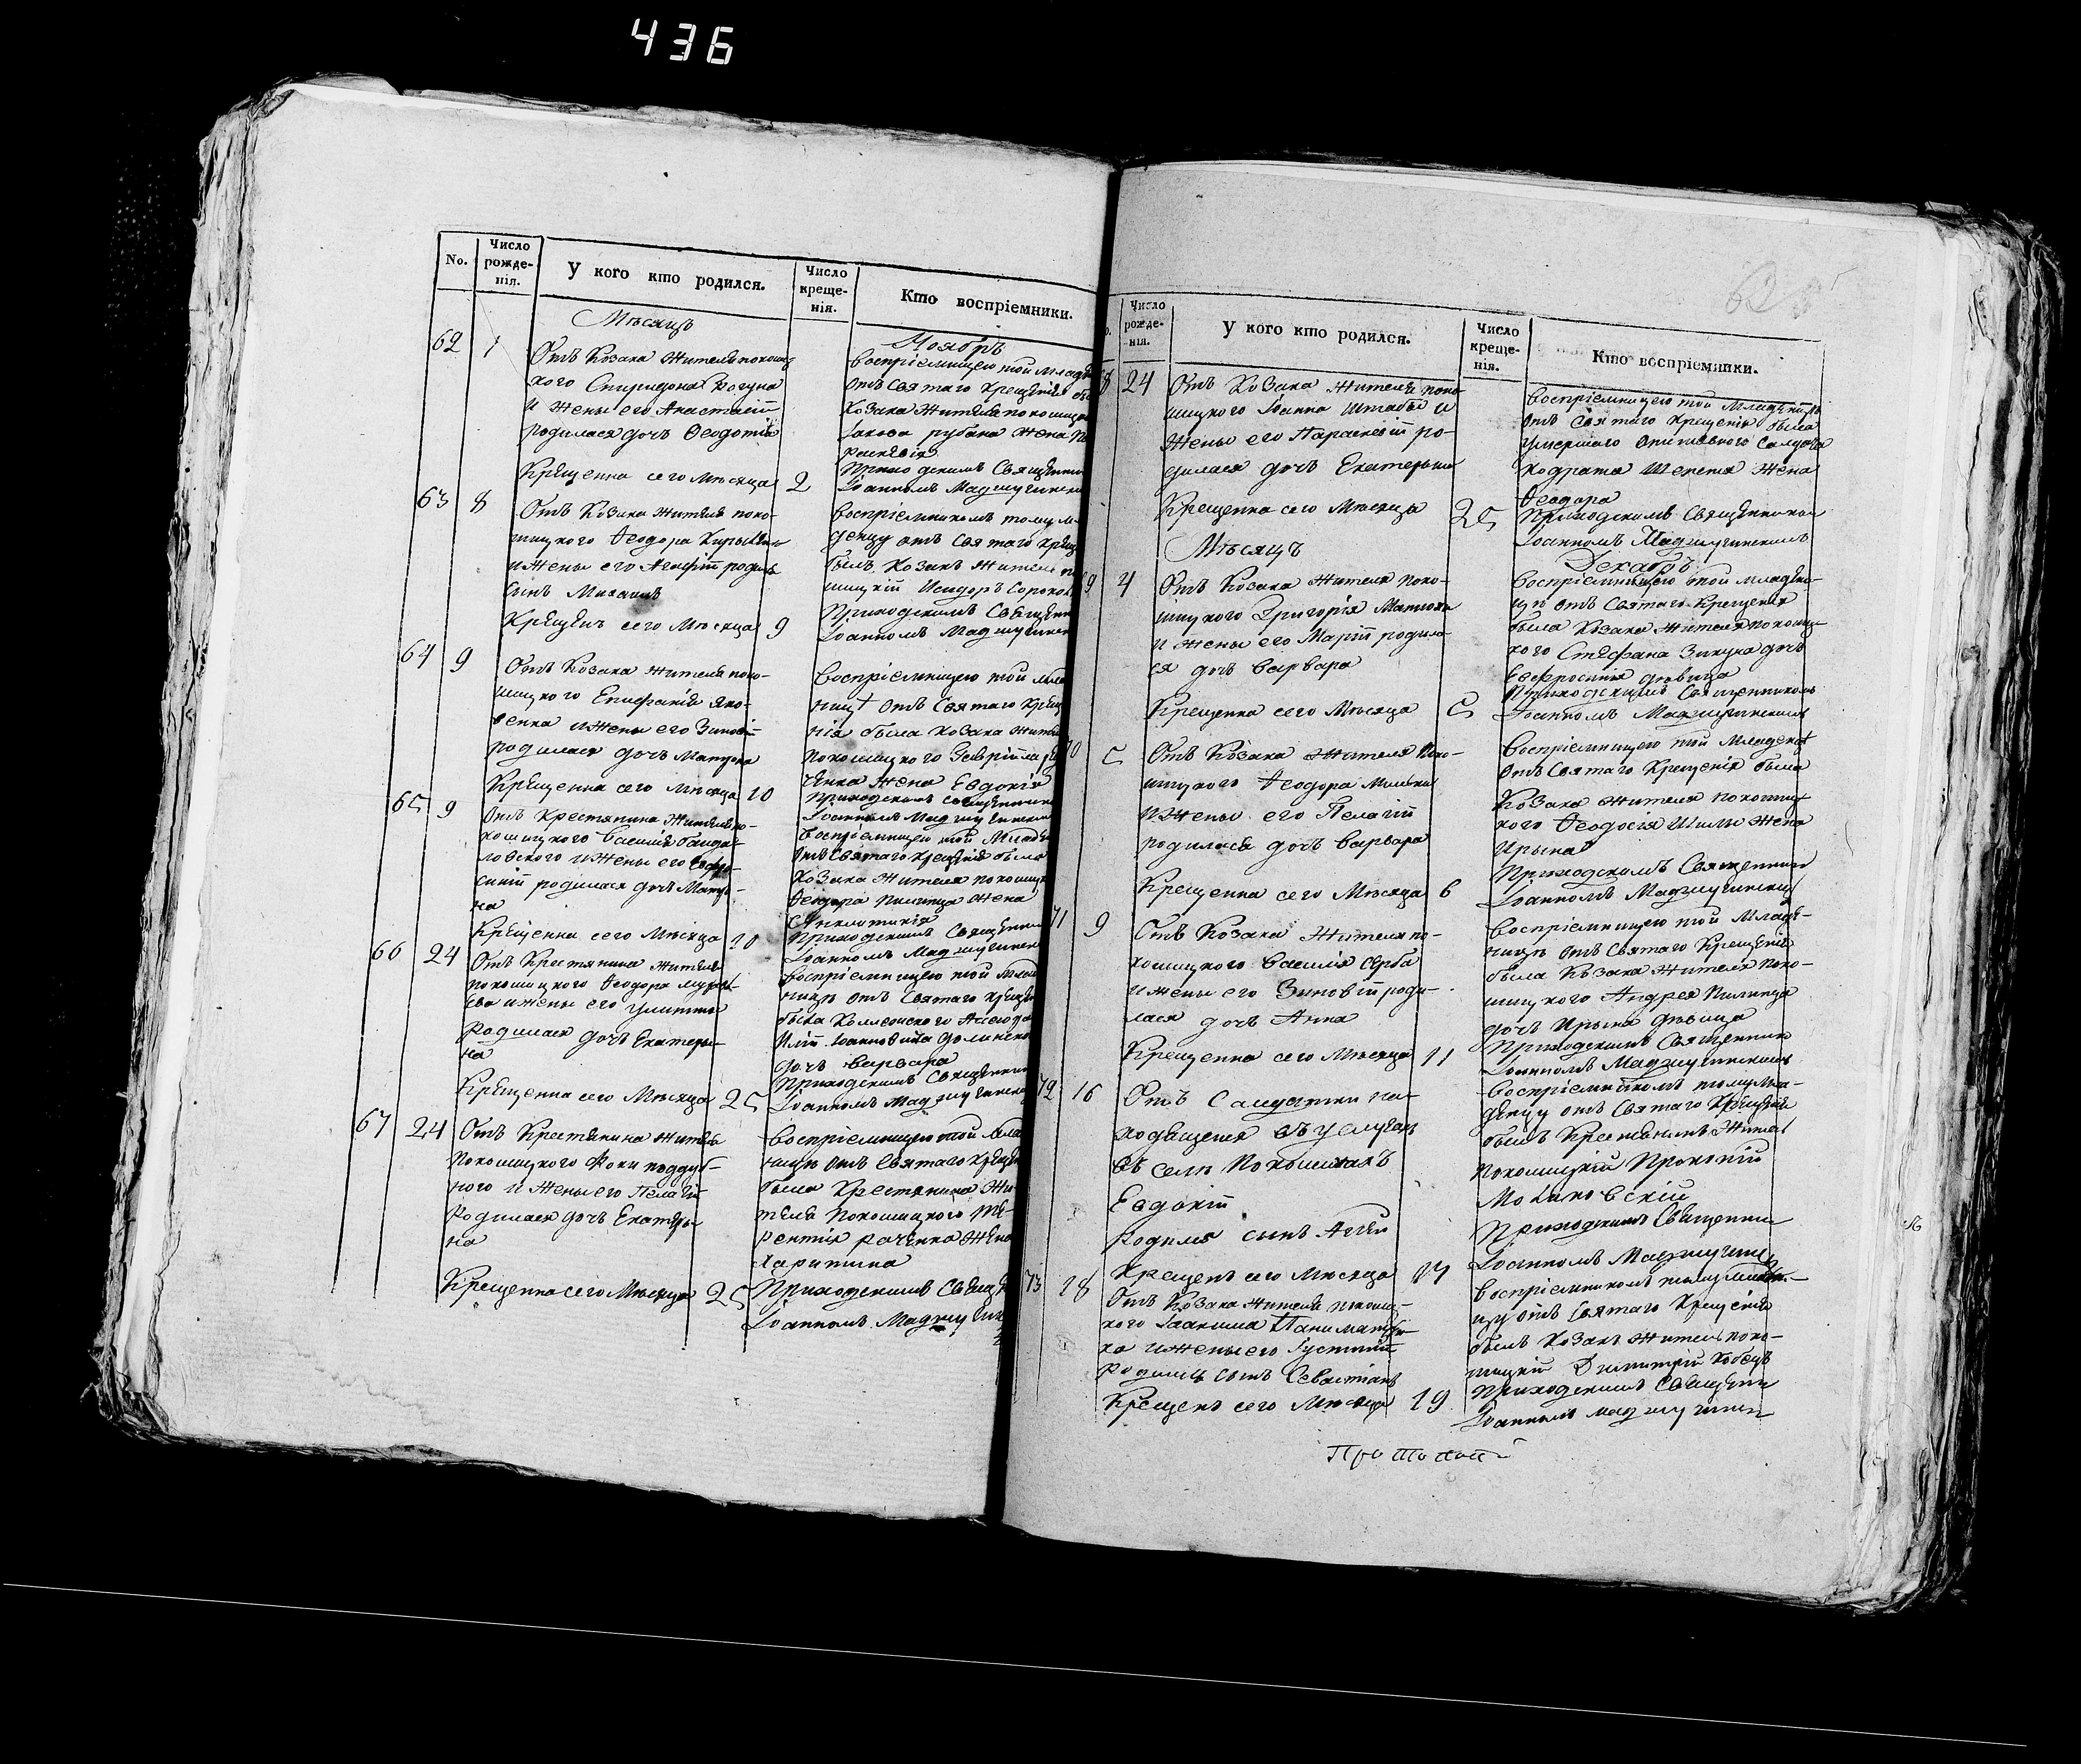 436
No.
Число рожде-нія.
У кого кто родился.
Число креще-нія.
Кто воспріемники.
Мѣсяцъ
Ноябрь
62 1
Отъ Козака Жителя покошиц
кого Спиридона Когуна
и жены его Анастасіи
родилася дочь Феодотія
Крещенна сего Мѣсяца 2
воспріемницею той младе
отъ Святаго Крещенія бы
Козака Жителя покошиц
Іакова рубана жена Па
раскевія
Приходскимъ Священни
Іоанномъ Маджугинским
63 8
Отъ Козака Жителя поко-
шицкого Феодора
и жены его Агафіи родил
сынъ Михаилъ
Крещенъ сего Мѣсяца 9
воспріемникомъ тому м
денцу отъ Святаго Крещ
былъ Козакъ Житель по
шицкій Исидоръ
Приходскимъ Священн
Іоанномъ Маджугинск
64 9
Отъ Козака Жителя поко-
шицкого Епифанія Яко-
венка и жены его Зиновіи
родилася дочь Матрона
Крещенна сего мѣсяца 10
Воспріемницею той мла
ницѣ отъ Святаго Крещ
нія была Козака Жител
покошицкого Гавріила
ченка жена Евдокія
Приходскимъ Священник
Іоанномъ Маджугинским
65 9
Отъ Крестянина Жителя по-
кошицкого Василія
ловского и жены его Евфро-
синіи родилася дочь Матро-
на
Крещенна сего Мѣсяца 10
Воспріемницею той Младе
отъ Святаго Крещенія была
Козака Жителя покошиц
Феодора Пилипца жена
Синклитикія
Приходскимъ Священни
Іоанномъ Маджугинск
66 24
Отъ Крестянина Жителя
покошицкого Феодора
и жены его Улитты
родилася дочь Екатери-
на
Крещенна сего Мѣсяца 25
воспріемницею той млад
ницѣ отъ Святаго Креще
была
Иліи Іоанновича Долинско
дочь варвара
Приходскимъ Священник
Іоанномъ Маджугинск
67 24
Отъ Крестянина Жителя
Покошицкого Фоки поддуб-
ного и жены его Пелагіи
родилася дочь Екатери-
на
Крещенна сего Мѣсяца 25
Воспріемницею той Мла
ницѣ отъ Святаго Креще
была Крестянина Жи-
теля Покошицкого Те-
рентія рогенка жена
Харитина
Приходскимъ Свящ
Іоанномъ Маджугин
Число рожде-нія.
У кого кто родился.
Число креще-нія.
Кто воспріемники.
8 24
Отъ Козака Жителя поко-
шицкого Іоанна Штабы и
жены его Параскевіи ро-
дилася дочь Екатерина
Крещенна сего Мѣсяца 25
Воспріемницею той Младеницѣ
отъ Святаго Крещенія была
умершаго Салдата
Кодрата Шепеля жена
Феодора
Приходскимъ Священником
Іоанномъ Маджугинскимъ
Мѣсяцъ
Декабрь
9 4
Отъ Козака Жителя поко-
шицкого Григорія
и жены его Маріи родила-
ся дочь варвара
Крещенна сего Мѣсяца 5
воспріемницею той младени-
цѣ отъ Святаго Крещенія
была Козака Жителя покошиц-
кого Стефана Зикука дочь
Евфросинія дѣвица
Приходскимъ Священникомъ
Іоанномъ Маджугинскимъ
70 5
Отъ Козака Жителя Поко-
шицкого Феодора
и жены его Пелагіи
родилася дочь варвара
Крещенна сего Мѣсяца 6
Воспріемницею той Младениц
отъ Святаго Крещенія была
Козака Жителя покошиц
кого Феодосія Шилы жена
Ирына
Приходскимъ Священник
Іоанномъ Маджугинским
71 9
Отъ Козака Жителя по-
кошицкого Василія Серба
и жены его Зиновіи роди-
лася дочь Анна
Крещенна сего Мѣсяца 11
Воспріемницею той Младе-
ницѣ отъ Святаго Крещенія
была Козака Жителя поко-
шицкого Андрея Пилипца
дочь Ирына дѣвица
Приходскимъ Священник
Іоанномъ Маджугинскимъ
72 16
Отъ Салдатки на-
ходящеися въ услугахъ
въ селѣ Покошичахъ
Евдокіи
родился сынъ Аггей
Крещенъ сего Мѣсяца 17
Воспріемникомъ тому мла-
денцу отъ Святаго Крещенія
былъ Крестянинъ Жител
Покошицкій Прокопій
Приходскимъ Священник
Іоанномъ Маджугинск
73 18
Отъ Козака Жителя покошиц-
кого Іоакима
и жены его Іустиніи
родился сынъ Севастіанъ
Крещенъ сего Мѣсяца 19
воспріемникомъ тому младен-
цу отъ Святаго Крещенія
былъ Козакъ Житель поко-
шицкій Димитрій Кобецъ
Приходскимъ Священни
Іоанномъ Маджугинск